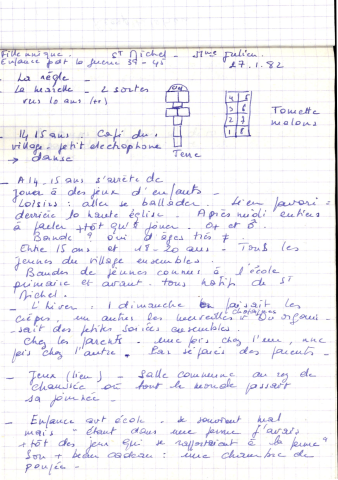 Fille unique. St Michel - Mme Julien.
Enfance pdt la guerre 39-45 27.1.82
- La règle -
- La marelle - 2 sortes
vers 10 ans (++)
4 5
3 6
2 7
1 8
Tomette
melons
Terre
- 14 15 ans - Café du
village - petit electrophone
→ danse
- A 14-15 ans s'arrête de
jouer à des jeux d'enfants -
Loisirs : aller se ballader. Lieu favori =
derrière la haute église. Après midi entiers
à parler + tôt qu'à jouer - ♂ et ♀.
Bande ? oui d'âges très ≠ -
Entre 15 ans et 18-20 ans. Tous les
jeunes du village ensembles.
Bandes de jeunes connus à l'école
primaire et avant. tous natifs de St
Michel.
- L'hiver : 1 dimanche on faisait les
crêpes, un autre les merveilles, châtaignes On organi-
-sait des petites soirées ensembles -
Chez les parents - une fois chez l'une, une
fois chez l'autre. Pas séparés des parents -
- Jeux (lieu) - Salle commune au rez de
chaussée où tout le monde passait
sa journée -
- Enfance avt école - se souvient mal
mais - étant dans une ferme j'avais
+ tôt des jeux qui se rapportaient à la ferme"
Son + beau cadeau : une chambre de
poupée -